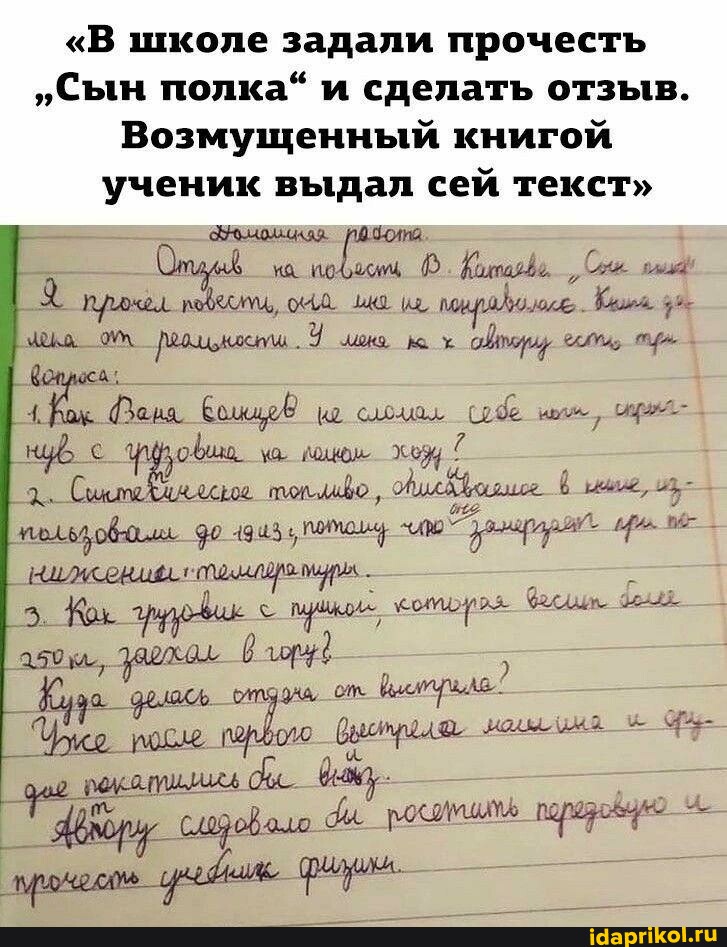 «В школе задали прочесть
„Сын полка“ и сделать отзыв.
Возмущенный книгой
ученик выдал сей текст»
Домашняя работа.
Отзыв на повесть В. Катаева „Сын полка"
Я прочёл повесть, она мне не понравилась. Книга да-
лека от реальности. У меня к автору есть три
вопроса:
1. Как Ваня Солнцев не сломал себе ноги, спрыг-
нув с грузовика на полном ходу?
2. Синтетическое топливо, описываемое в книге, из-
пользовали до 1943, потому что оно замерзает при по-
нижении температуры.
3. Как грузовик с пушкой, которая весит более
250 кг, заехал в гору?
Куда делась отдача от выстрела?
Уже после первого выстрела машина и ору-
дие покатились бы вниз.
Автору следовало бы посетить передовую и
прочесть учебник физики.
idaprikol.ru